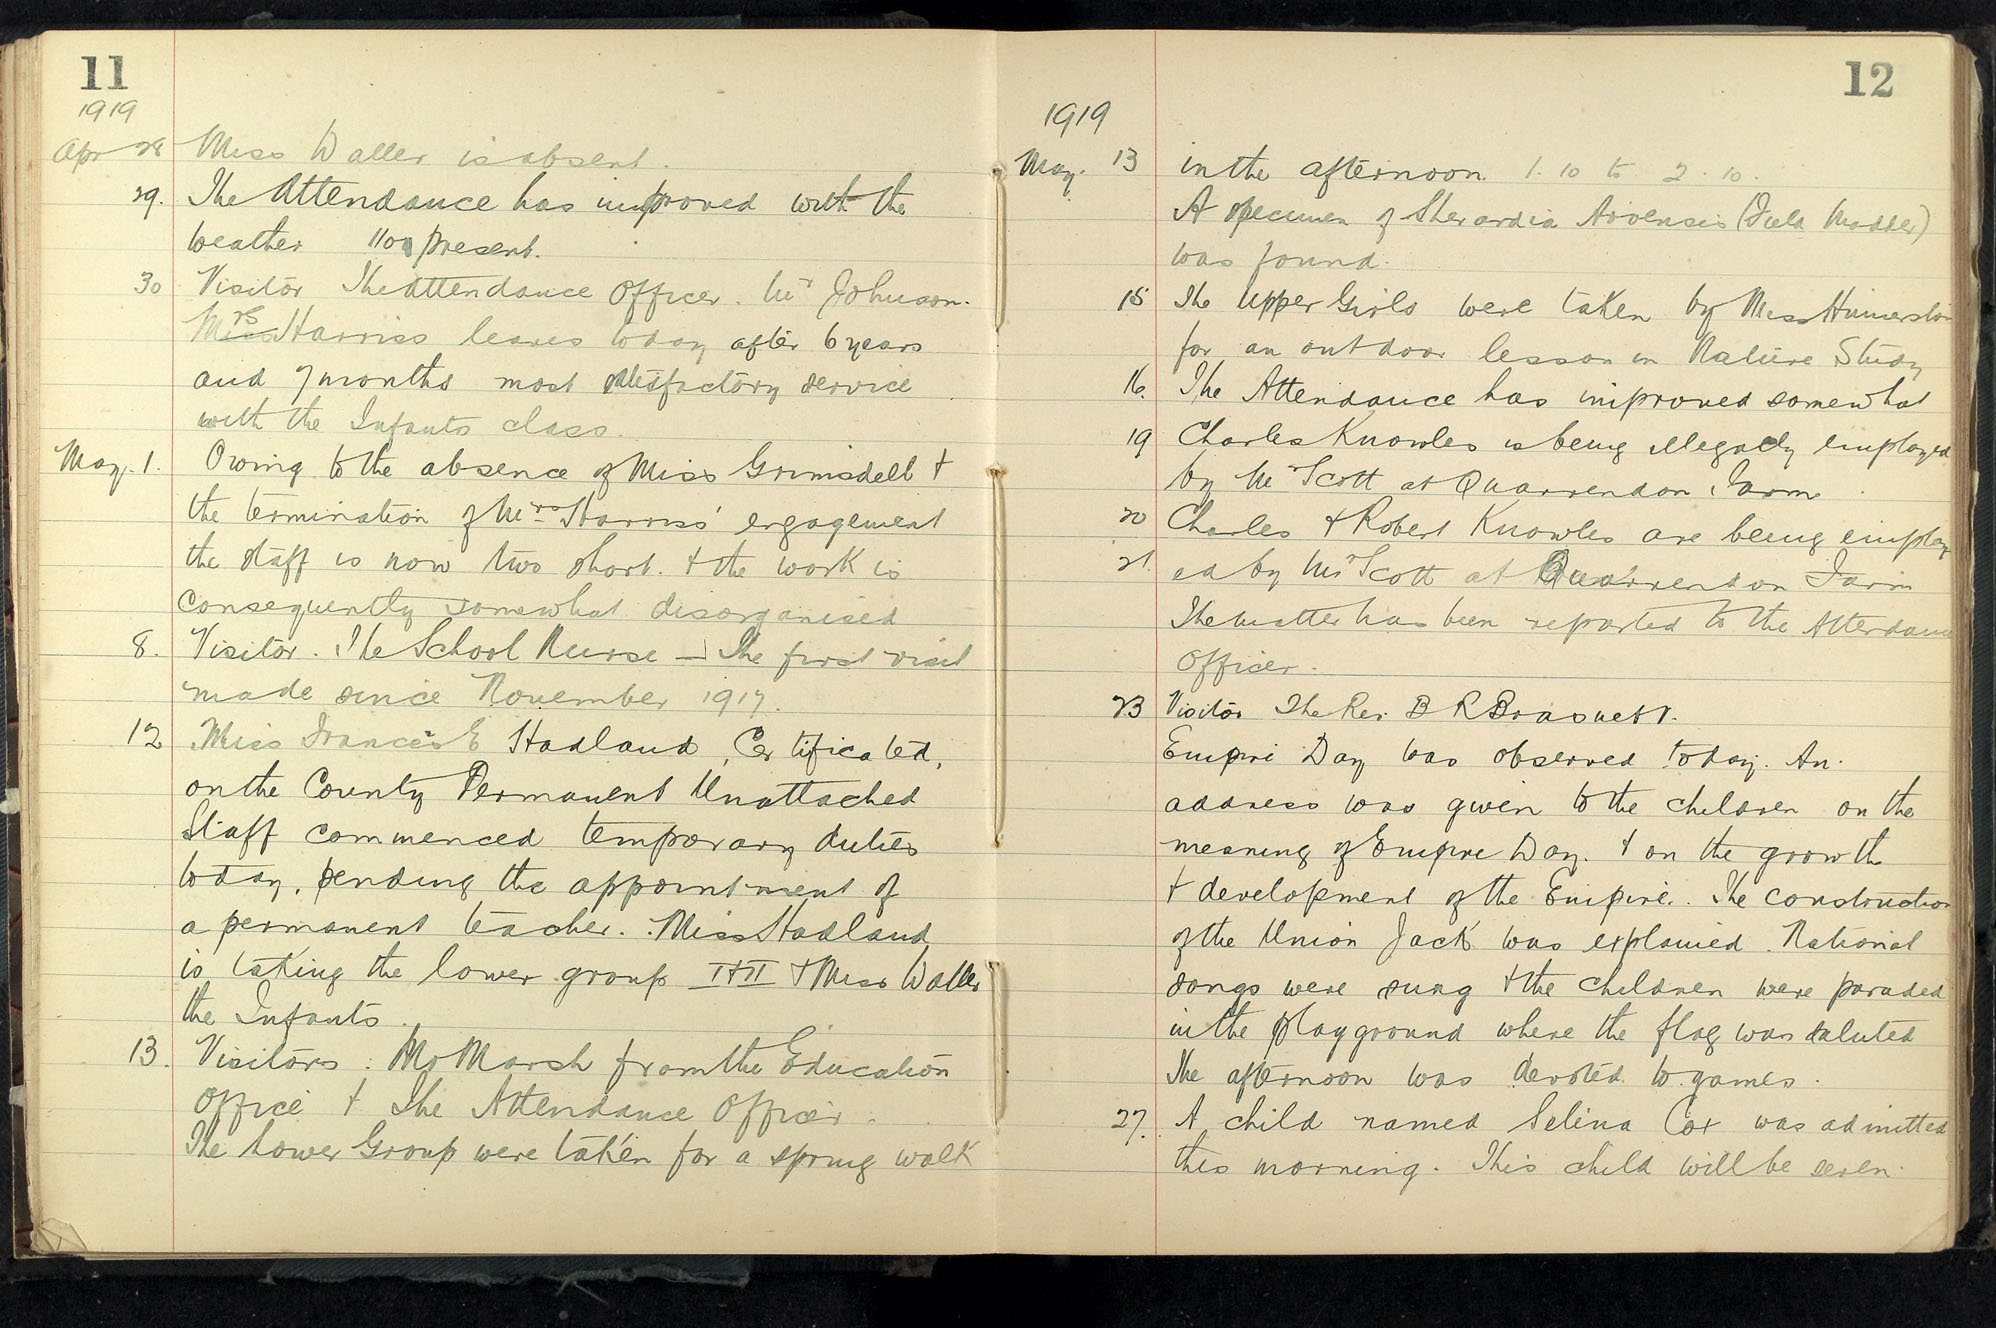 11
1919
Apr 28 Miss Waller is absent.
29. The Attendance has improved with the
weather 110 present.
30 Visitor The Attendance Officer. Mr Johnson.
Mrs Harriss leaves today after 6 years
and 7 months most satisfactory service
with the Infants class.
May. 1. Owing to the absence of Miss Grimsdell +
the termination of Mrs Harriss' engagement
the staff is now two short. + the work is
consequently somewhat disorganised
8. Visitor. The School Nurse — The first visit
made since November 1917.
12 Miss Frances E Hadland, Certificated,
on the County Permanent Unattached
Staff commenced temporary duties
today, pending the appointment of
a permanent teacher. Miss Hadland
is taking the lower group I + II + Miss Waller
the Infants.
13. Visitors: Mr Marsh from the Education
Office + The Attendance Officer.
The Lower Group were taken for a spring walk
12
1919
May. 13 in the afternoon 1.10 to 2.10.
A specimen of Sherardia Arvensis (Field Madder)
was found.
15 The Upper Girls were taken by Miss
for an outdoor lesson in Nature Study
16. The Attendance has improved somewhat
19 Charles Knowles is being illegally employed
by Mr Scott at Quarrendon Farm.
20 Charles + Robert Knowles are being employ
21. ed by Mr Scott at Quarrendon Farm
The matter has been reported to the Attendance
Officer.
23 Visitor The Rev. B R Brasnett.
Empire Day was observed today. An
address was given to the children on the
meaning of Empire Day. + on the growth
+ development of the Empire. The construction
of the Union Jack was explained. National
songs were sung + the children were paraded
in the playground where the flag was saluted
The afternoon was devoted to games.
27. A child named Selina Cox was admitted
this morning. This child will be seven